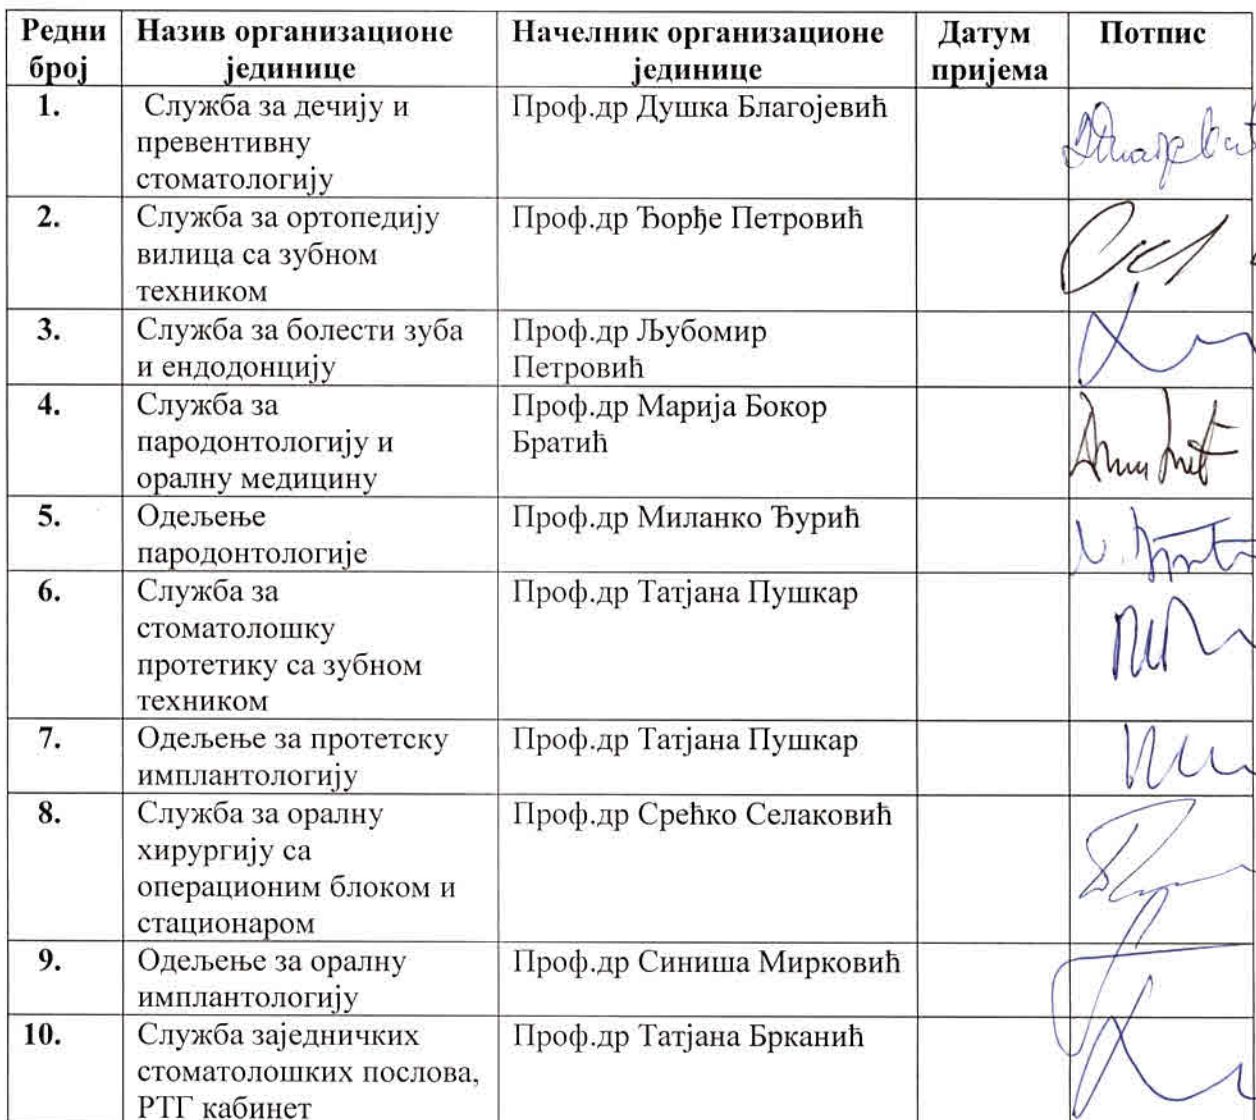 Редни број
Назив организационе јединице
Начелник организационе јединице
Датум пријема
Потпис
1.
Служба за дечију и
превентивну
стоматологију
Проф.др Душка Благојевић
2.
Служба за ортопедију
вилица са зубном
техником
Проф.др Ђорђе Петровић
3.
Служба за болести зуба
и ендодонцију
Проф.др Љубомир
Петровић
4.
Служба за
пародонтологију и
оралну медицину
Проф.др Марија Бокор
Братић
5.
Одељење
пародонтологије
Проф.др Миланко Ђурић
6.
Служба за
стоматолошку
протетику са зубном
техником
Проф.др Татјана Пушкар
7.
Одељење за протетску
имплантологију
Проф.др Татјана Пушкар
8.
Служба за оралну
хирургију са
операционим блоком и
стационаром
Проф.др Срећко Селаковић
9.
Одељење за оралну
имплантологију
Проф.др Синиша Мирковић
10.
Служба заједничких
стоматолошких послова,
РТГ кабинет
Проф.др Татјана Брканић